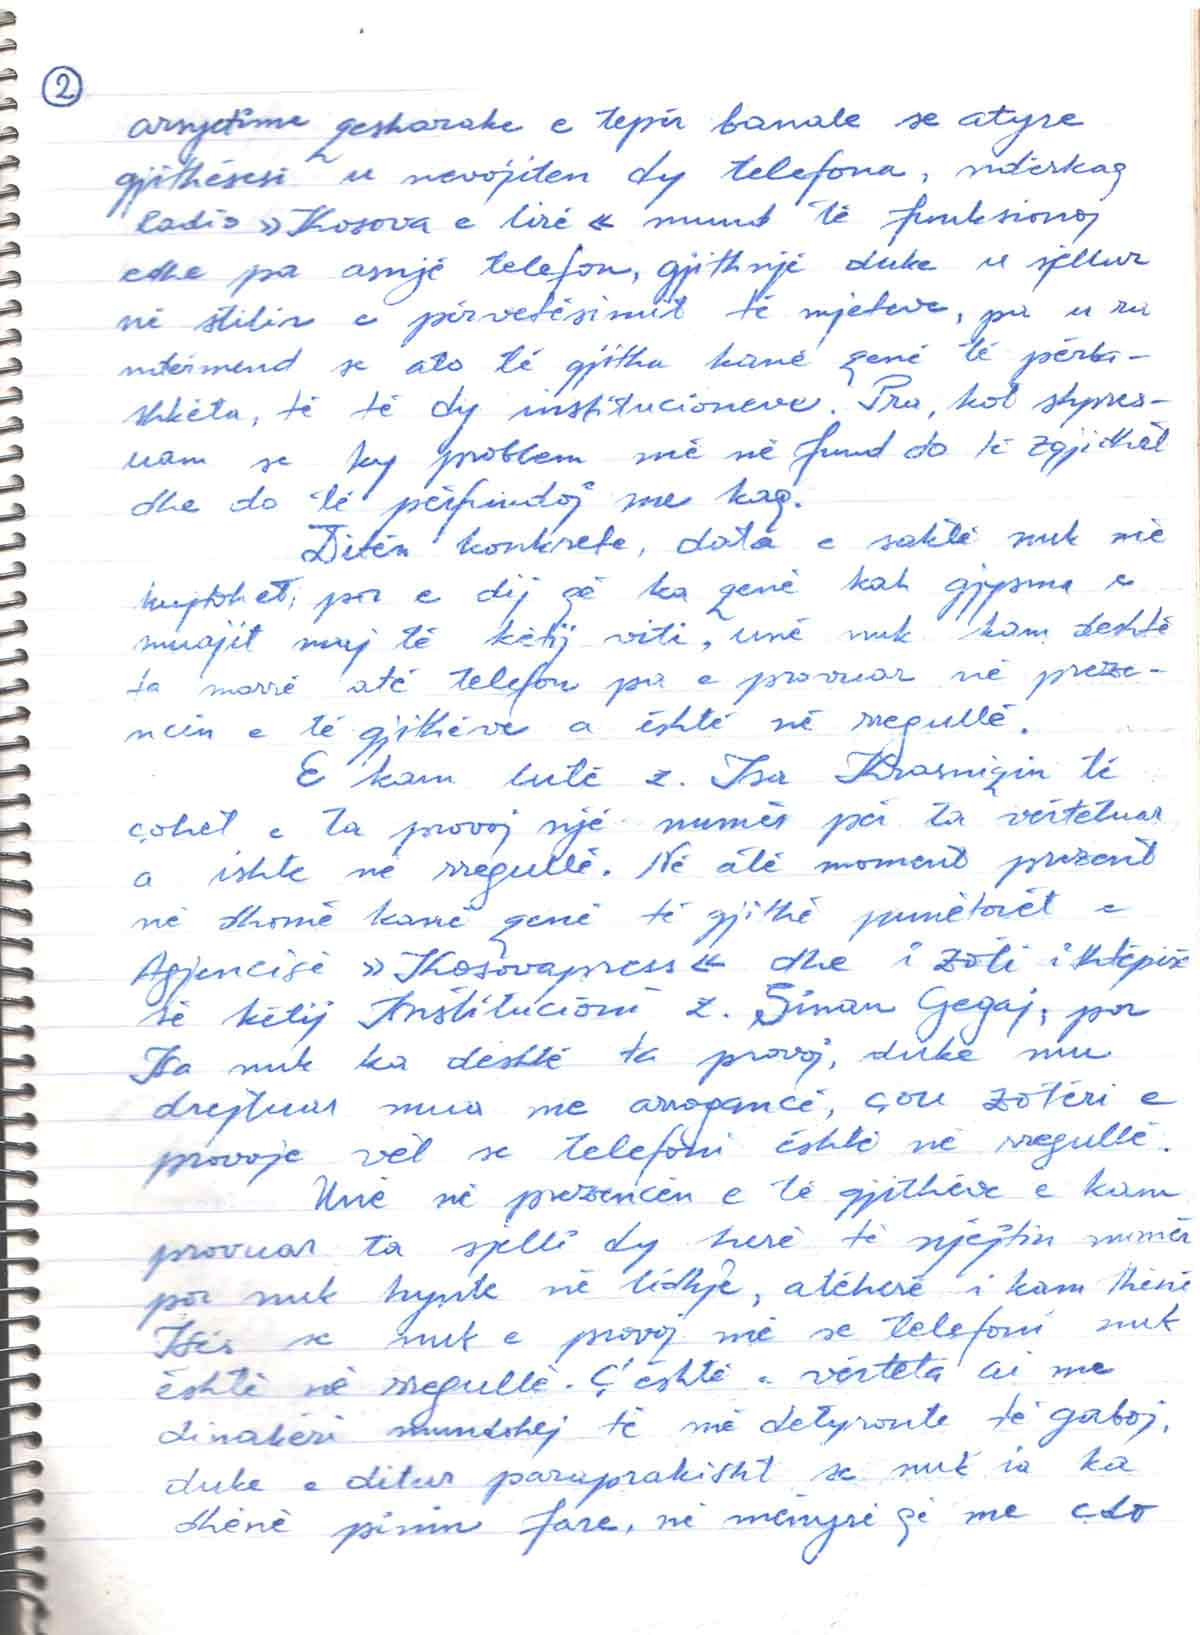 2
arsyetime qesharake e tepër banale se atyre
gjithësesi u nevojiten dy telefona, ndërkaq
Radio »Kosova e lirë« mund të funksionoj
edhe pa asnjë telefon, gjithnjë duke u sjellur
në stilin e përvetësimit të mjeteve, pa u ra
ndërmend se ato të gjitha kanë qenë të përba-
shkëta, të të dy institucioneve. Pra, kot shpres-
uam se ky problem më në fund do të zgjidhët
dhe do të përfundoj me kaq.
Ditën konkrete, data e saktë nuk më
kujtohet, por e dij që ka qenë kah gjysma e
muajit maj të këtij viti, unë nuk kam deshtë
ta marrë atë telefon pa e provuar në preze-
ncën e të gjithëve a është në rregullë.
E kam lutë z. Isa Krasniqin të
çohet e ta provoj një numër për ta vërtetuar
a ishte në rregullë. Në atë moment prezent
në dhomë kanë qenë të gjithë punëtorët e
Agjencisë »Kosovapress« dhe i zoti i shtëpisë
së këtij Institucioni z. Sinan Gegaj, por
Isa nuk ka deshtë ta provoj, duke mu
drejtuar mua me arrogancë, çou zotëri e
provoje vet se telefoni është në rregullë.
Unë në prezencën e të gjithëve e kam
provuar ta sjelli dy herë të njëjtin numër
por nuk hynte në lidhje, atëherë i kam thënë
Isës se nuk e provoj më se telefoni nuk
është në rregullë. Ç'është e vërteta ai me
dinakëri mundohej të më detyronte të gaboj,
duke e ditur paraprakisht se nuk ia ka
dhënë pinin fare, në mënyrë që me çdo